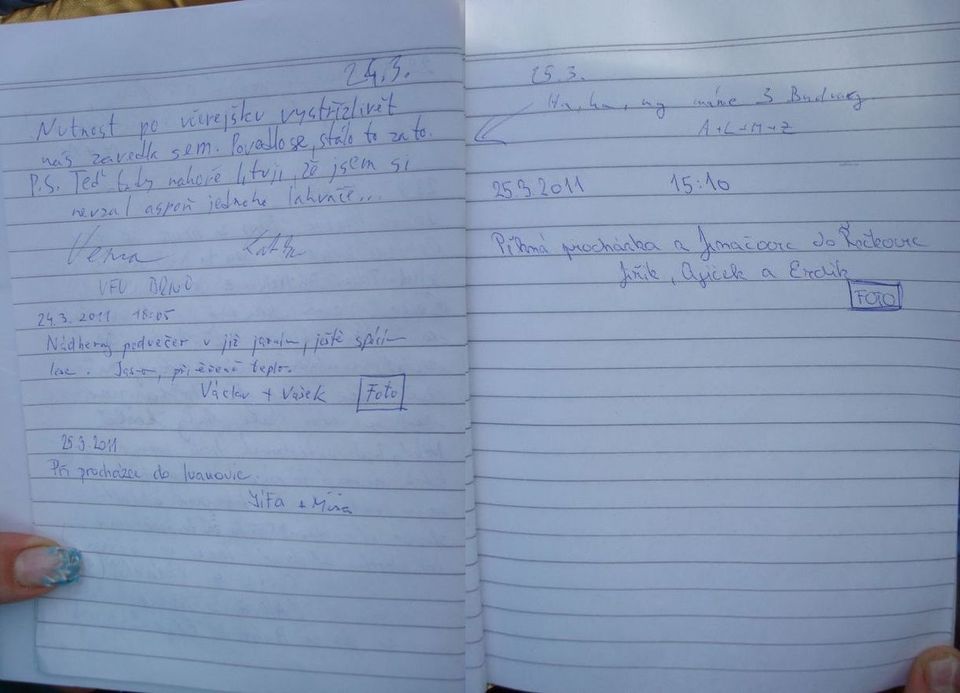 24.3.
Nutnost po včerejšku vystřízlivět
nás zavedla sem. Povedlo se, stálo to za to.
P.S. Teď tady nahoře lituji, že jsem si
nevzal aspoň jednoho lahváče...
VFU BRNO
24.3.2011 18:05
Nádherný podvečer v již jarním, ještě spícím
lese. Jasno, přiměřeně teplo.
Václav + Vašek Foto
25.3.2011
Při procházce do Ivanovic.
Jiřa + Míša
25.3.
Ha, ha, my máme 3 Budvary
A+L+M+Z
25.3.2011 15:10
Pěkná procházka z Jinačovic do Řečkovic
Jiřík, a Erdík
FOTO